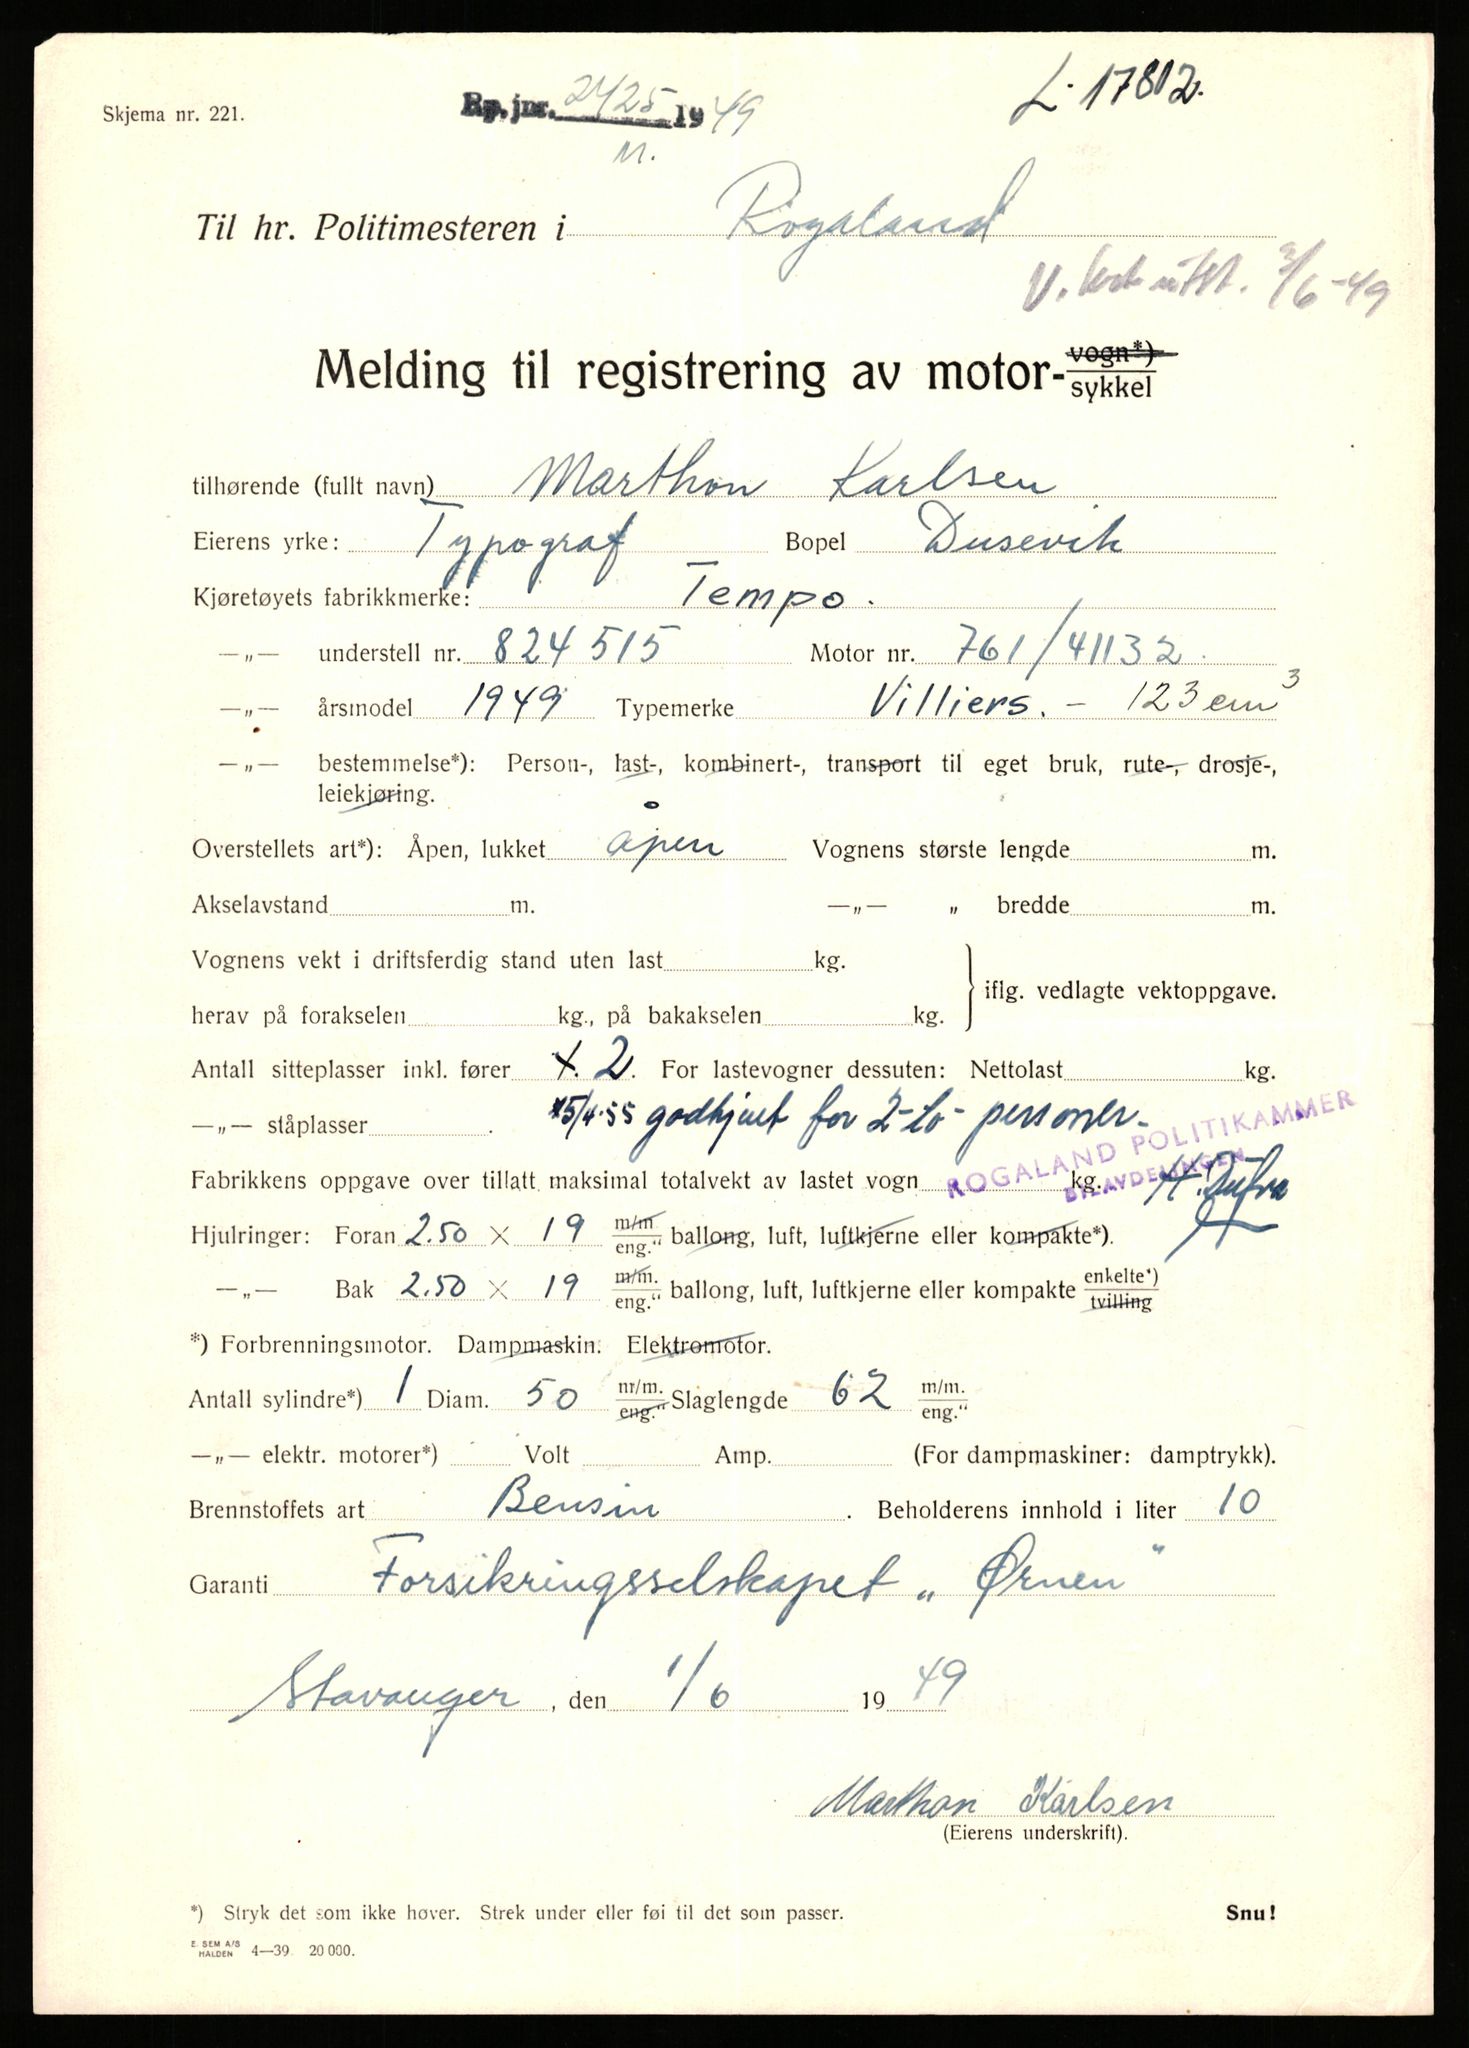 Skjema nr. 221.
Rp. jnr. 2425 1949
L-17812.
M.
Til hr. Politimesteren i Rogaland
V. 3/6-49
Melding til registrering av motor- vogn*) sykkel
tilhørende (fullt navn) Marthon Karlsen
Eierens yrke: Typograf Bopel Dusevik
Kjøretøyets fabrikkmerke: Tempo.
—„— understell nr. 824515 Motor nr. 761/41132.
—„— årsmodel 1949 Typemerke Villiers. - 123 cm3
—„— bestemmelse*): Person-, last-, kombinert-, transport til eget bruk, rute-, drosje-,
leiekjøring.
Overstellets art*): Åpen, lukket åpen Vognens største lengde m.
Akselavstand m. —„— „ bredde m.
Vognens vekt i driftsferdig stand uten last kg.
iflg. vedlagte vektoppgave.
herav på forakselen kg., på bakakselen kg.
Antall sitteplasser inkl. fører 2. For lastevogner dessuten: Nettolast kg.
—„— ståplasser . *5/4-55 godkjent for 2-to- personer.
ROGALAND POLITIKAMMER
BILAVDELINGEN
Fabrikkens oppgave over tillatt maksimal totalvekt av lastet vogn kg.
Hjulringer: Foran 2.50 × 19 m/m eng." ballong, luft, luftkjerne eller kompakte*).
—„— Bak 2.50 × 19 m/m. eng." ballong, luft, luftkjerne eller kompakte enkelte*) tvilling
*) Forbrenningsmotor. Dampmaskin. Elektromotor.
Antall sylindre*) 1 Diam. 50 m/m. eng." Slaglengde 62 m/m. eng."
—„— elektr. motorer*) Volt Amp. (For dampmaskiner: damptrykk).
Brennstoffets art Bensin . Beholderens innhold i liter 10
Garanti Forsikringsselskapet „Ørnen"
Stavanger, den 1/6 1949
Marthon Karlsen
(Eierens underskrift).
*) Stryk det som ikke høver. Strek under eller føi til det som passer.
Snu!
E. SEM A/S HALDEN 4—39 20 000.